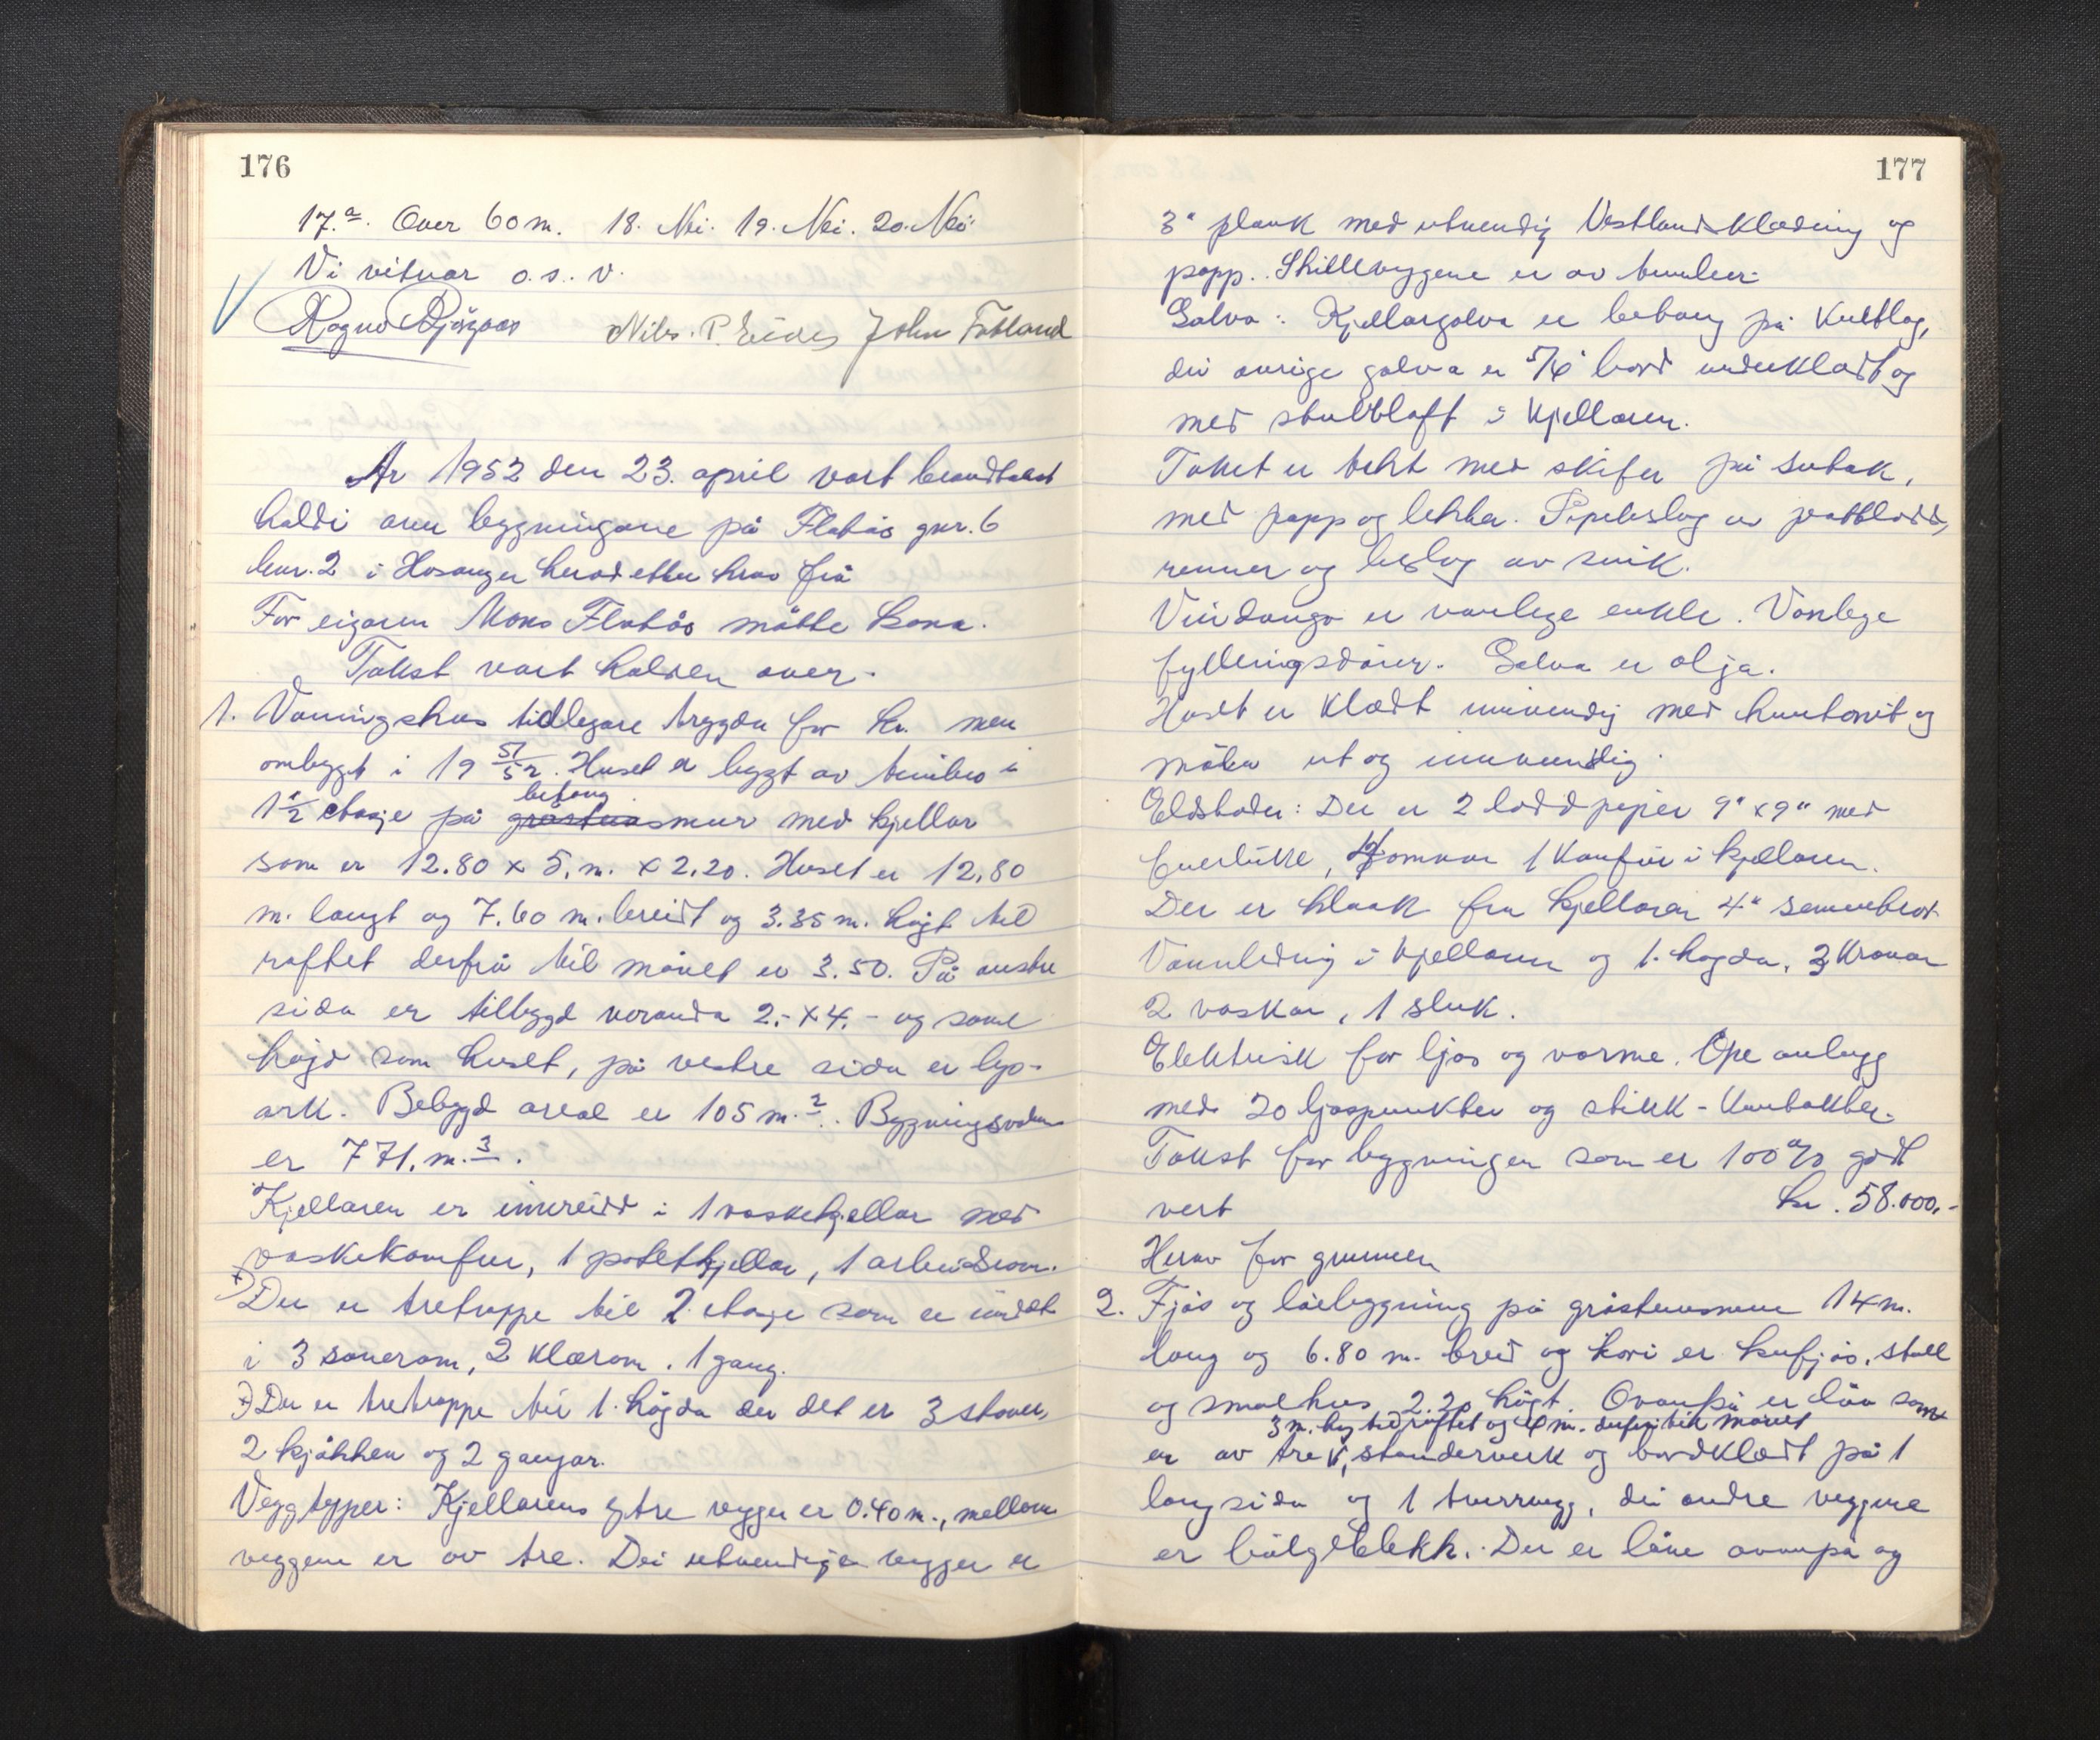 176
17.a. Over 60 m. 18. Nei. 19. Nei. 20. Nei.
Vi vitnar o.s.v.
Nils. P. Eides John Fotland
År 1952 den 23. april vart brandtakst
haldi over bygningane på Flatås gnr. 6
bnr. 2 i Hosanger herad etter krav frå
For eigaren Mons Flatås møtte kona.
Takst vart halden over.
1. Våningshus tidlegare trygda for kr. men
ombygt i 19 51/52. Huset er bygt av tømber i
1 1/2 etasje på gråsteinsmur betong med kjellar
som er 12.80 x 5. m. x 2.20. Huset er 12.80
m. langt og 7.60 m. breidt og 3.35 m. högt til
raftet derfrå til mönet er 3.50. På austre
sida er tilbygd veranda 2.- x 4.- og same
højd som huset, på vestre sida er byo-
ark. Bebygd areal er 105 m.2. Bygningsvolum
er 771. m.3.
Kjellaren er innreidd i 1 vaskekjellar med
vaskekomfur, 1 potetkjellar, 1 arbeidsrom.
Der er tretroppe til 2. etasje som er inndelt
i 3 soverom, 2 klærom. 1 gang.
+) Der er tretroppe til 1. högda der det er 3 stover,
2 kjökken og 2 gangar.
Veggtyper: Kjellarens ytre vegger er 0.40 m., mellom
veggene er av tre. Dei utvendige vegger er
177
3" plank med utvendig Vestlandsklædning og
papp. Skilleveggene er av tømber.
Golva: Kjellargolva er betong på kultlag,
dei øvrige golva er 5/4" bord underklædt og
med stubbloft i kjellaren.
Taket er tekt med skifer på sutak,
med papp og lekter. Pipebeslag av
renner og beslag av sink.
Vindauga er vanlege enkle. Vanlege
fyllingsdører. Golva er olja.
Huset er klædt innvendig med huntonit og
måla ut og innvendig.
Eldstader: Der er 2 lødd piper 9" x 9" med
1 komfur i kjellaren.
Der er kloakk fra kjellaren 4" sementrör
Vannledning i kjellaren og 1. høgda, 3 kranar
2 vaskar, 1 sluk.
Elektrisk for ljos og varme. Ope anlegg
med 20 ljospunkter og stikk-kontakter.
Takst for bygningen som er 100% godt
vert kr. 58.000.-
Herav for grunnen
2. Fjös og løebygning på gråsteinsmur 14 m.
lang og 6.80 m. breid og kori er kufjös, stall
og smalhus 2.20 högt. Ovanpå er löa som
3 m. høg til raftet og 4 m. derfrå til mönet
er av tre, stenderverk og bordklædt på 1
langsida og 1 tverrvegg, dei andre veggene
er bölgeblekk. Der er löe ovanpå og